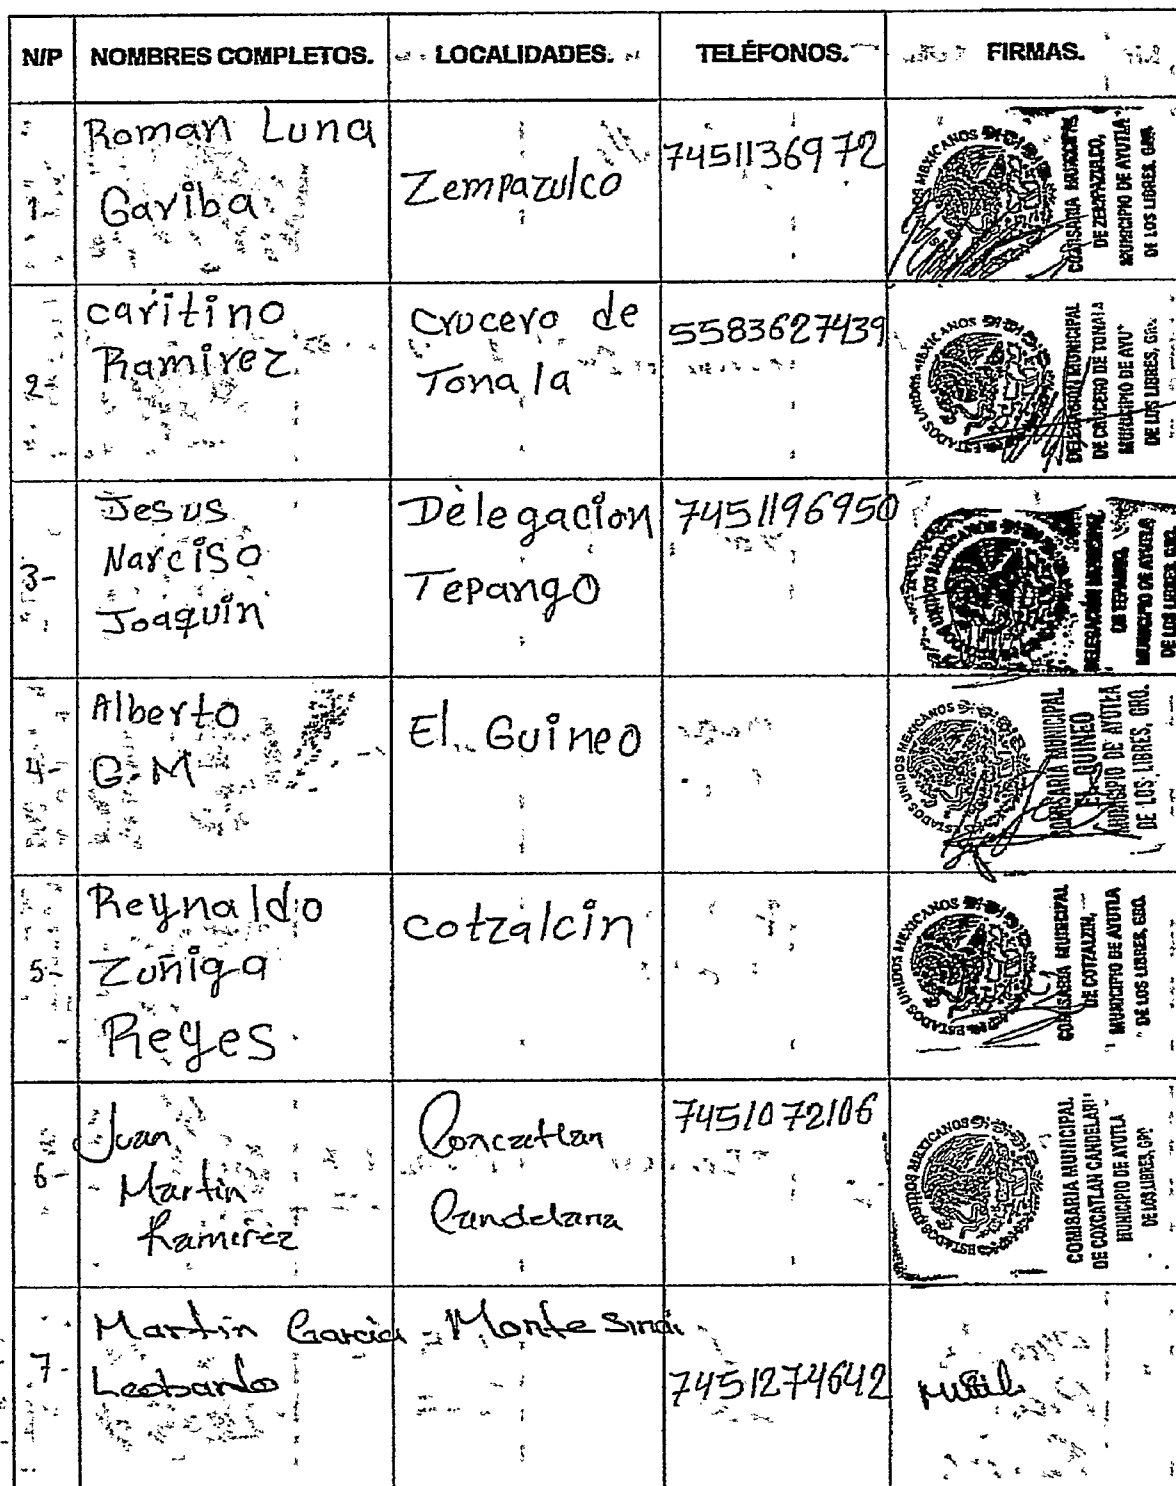 N/P NOMBRES COMPLETOS. LOCALIDADES. TELÉFONOS. FIRMAS.
1 Roman Luna
Gariba
Zempazulco
7451136972
COMISARIA MUNICIPAL
DE ZEMPAZULCO,
MUNICIPIO DE AYUTLA
DE LOS LIBRES, GRO.
2 caritino
Ramirez
crucero de
Tonala
5583627439
ESTADOS UNIDOS MEXICANOS
DELEGACION MUNICIPAL
DE CRUCERO DE TONALA
MUNICIPIO DE AYU
DE LOS LIBRES, GRO
3- Jesus
Narciso
Joaquin
Delegacion
Tepango
7451196950
DELEGACIÓN MUNICIPAL
DE TEPANGO,
MUNICIPIO DE AYUTLA
DE LOS LIBRES, GRO.
4- Alberto
G.M
El Guineo
ESTADOS UNIDOS MEXICANOS
COMISARIA MUNICIPAL
EL GUINEO
MUNICIPIO DE AYUTLA
DE LOS LIBRES, GRO.
5 Reynaldo
Zuñiga
Reyes
cotzalcin
ESTADOS UNIDOS MEXICANOS
COMISARIA MUNICIPAL
DE COTZALZIN,
MUNICIPIO DE AYUTLA
DE LOS LIBRES, GRO.
6- Juan
Martin
Ramirez
Concatlan
Candelaria
7451072106
ESTADOS UNIDOS MEXICANOS
COMISARIA MUNICIPAL
DE COXCATLAN CANDELARI
MUNICIPIO DE AYUTLA
DE LOS LIBRES, GRO
7- Martin Garcia
Leobardo
Monte Sinai
7451274642